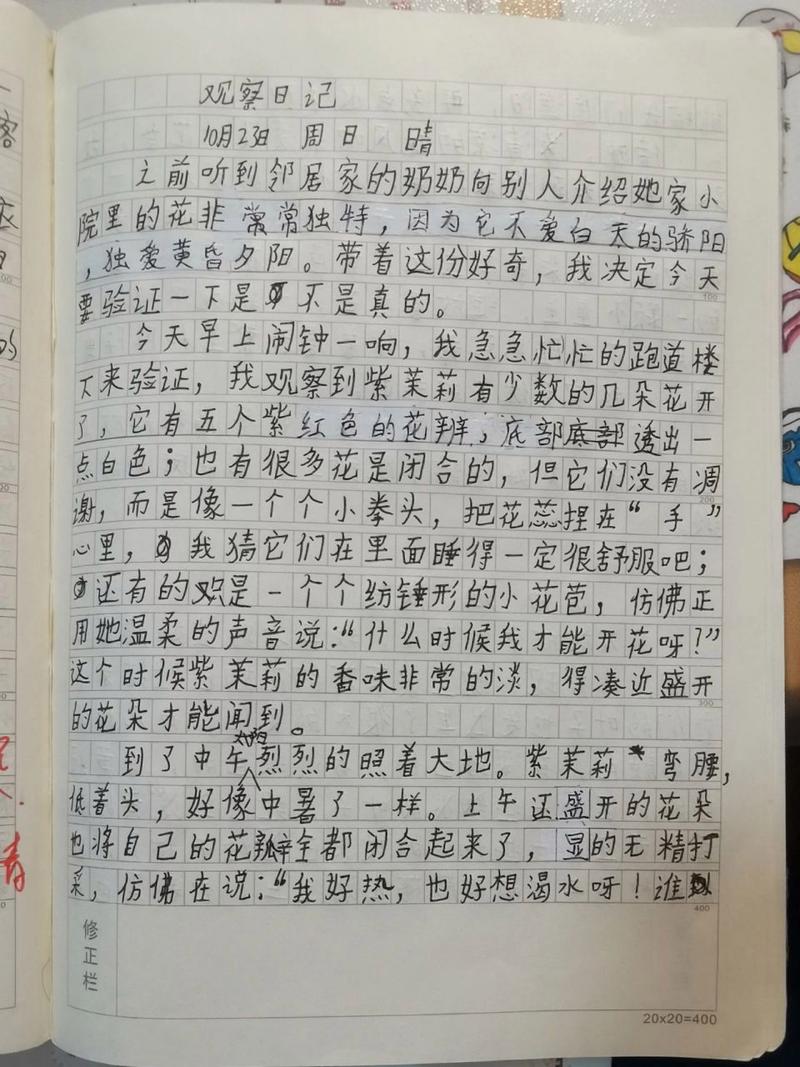 观察日记
10月23日 周日 晴
之前听到邻居家的奶奶向别人介绍她家小
院里的花非常常独特，因为它不爱白天的骄阳
，独爱黄昏夕阳。带着这份好奇，我决定今天
要验证一下是不是真的。
今天早上闹钟一响，我急急忙忙的跑道楼
下来验证，我观察到紫茉莉有少数的几朵花开
了，它有五个紫红色的花辨，底部底部透出一
点白色；也有很多花是闭合的，但它们没有凋
谢，而是像一个个小拳头，把花蕊捏在“手”
心里，我猜它们在里面睡得一定很舒服吧；
还有的是一个个纺锤形的小花苞，仿佛正
用她温柔的声音说：“什么时候我才能开花呀？”
这个时候紫茉莉的香味非常的淡，得凑近盛开
的花朵才能闻到。
到了中午太阳烈烈的照着大地。紫茉莉弯腰，
低着头，好像中暑了一样。上午还盛开的花朵
也将自己的花瓣全都闭合起来了，显的无精打
采，仿佛在说：“我好热，也好想渴水呀！谁
修正栏
20x20=400
100
200
300
400